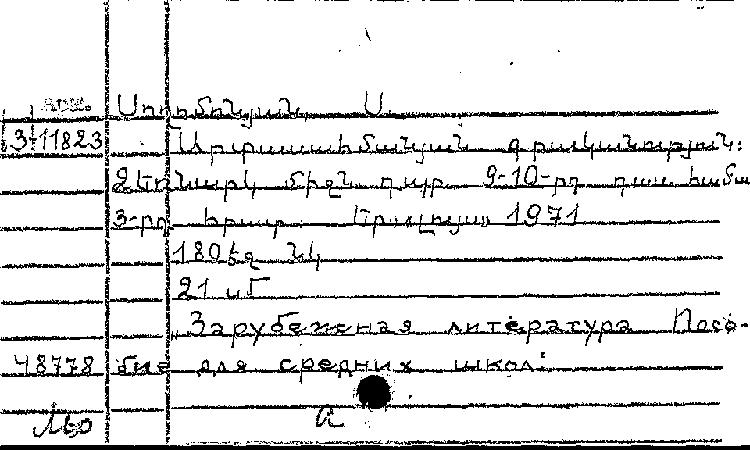 հոմ.
Սողոմոնյան Ս.
3-11823 Արտասահմանյան գրականություն:
Ձեռնարկ միջն. դպր. 9-10-րդ դաս. համա
3-րդ հրատ. Երևան, Լույս 1971
180 էջ նկ
21 սմ
Зарубежная литература Посо-
48778 бие для средних школ:
а